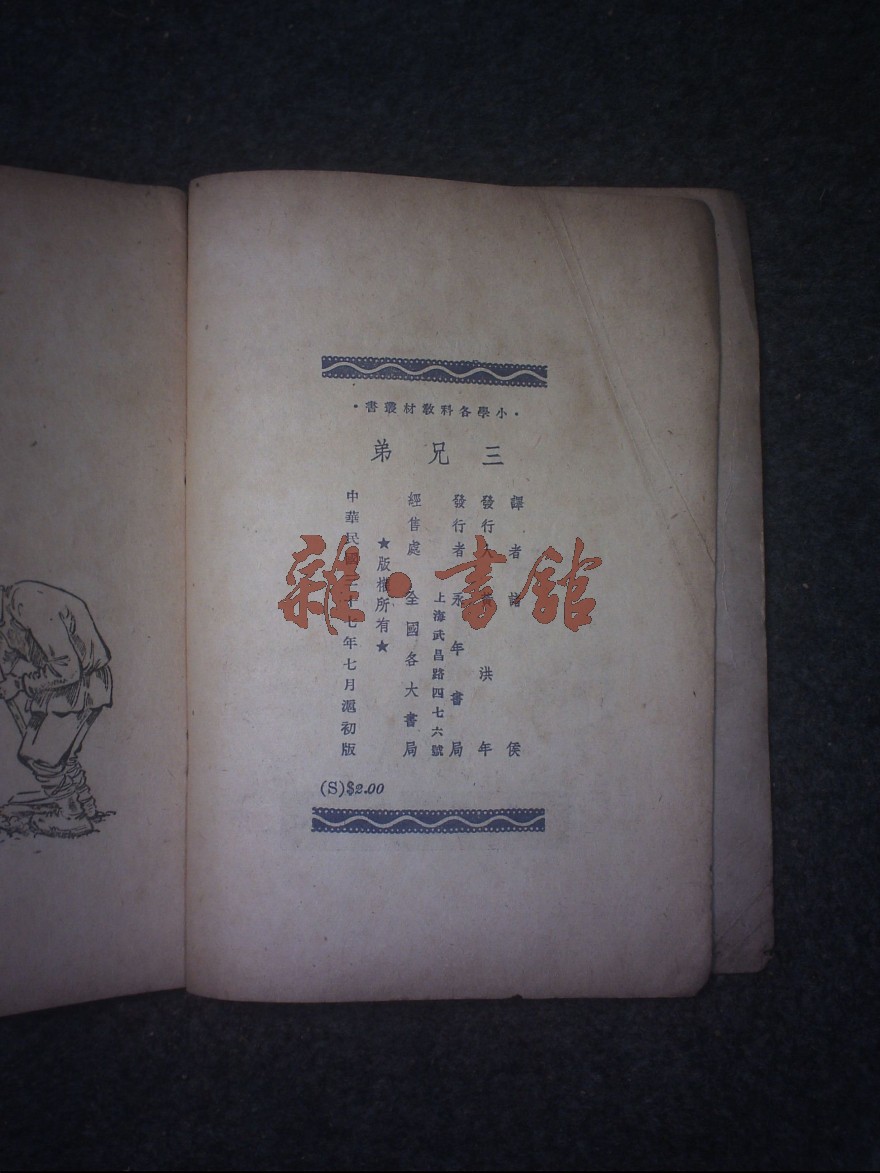 ・小學各科教材叢書・
三兄弟
譯者 諸 侯
發行人 洪年
發行者 永年書局
上海武昌路四七六號
經售處 全國各大書局
★版權所有★
中華民國三十七年七月滬初版
(S)$2.00
雜・書館